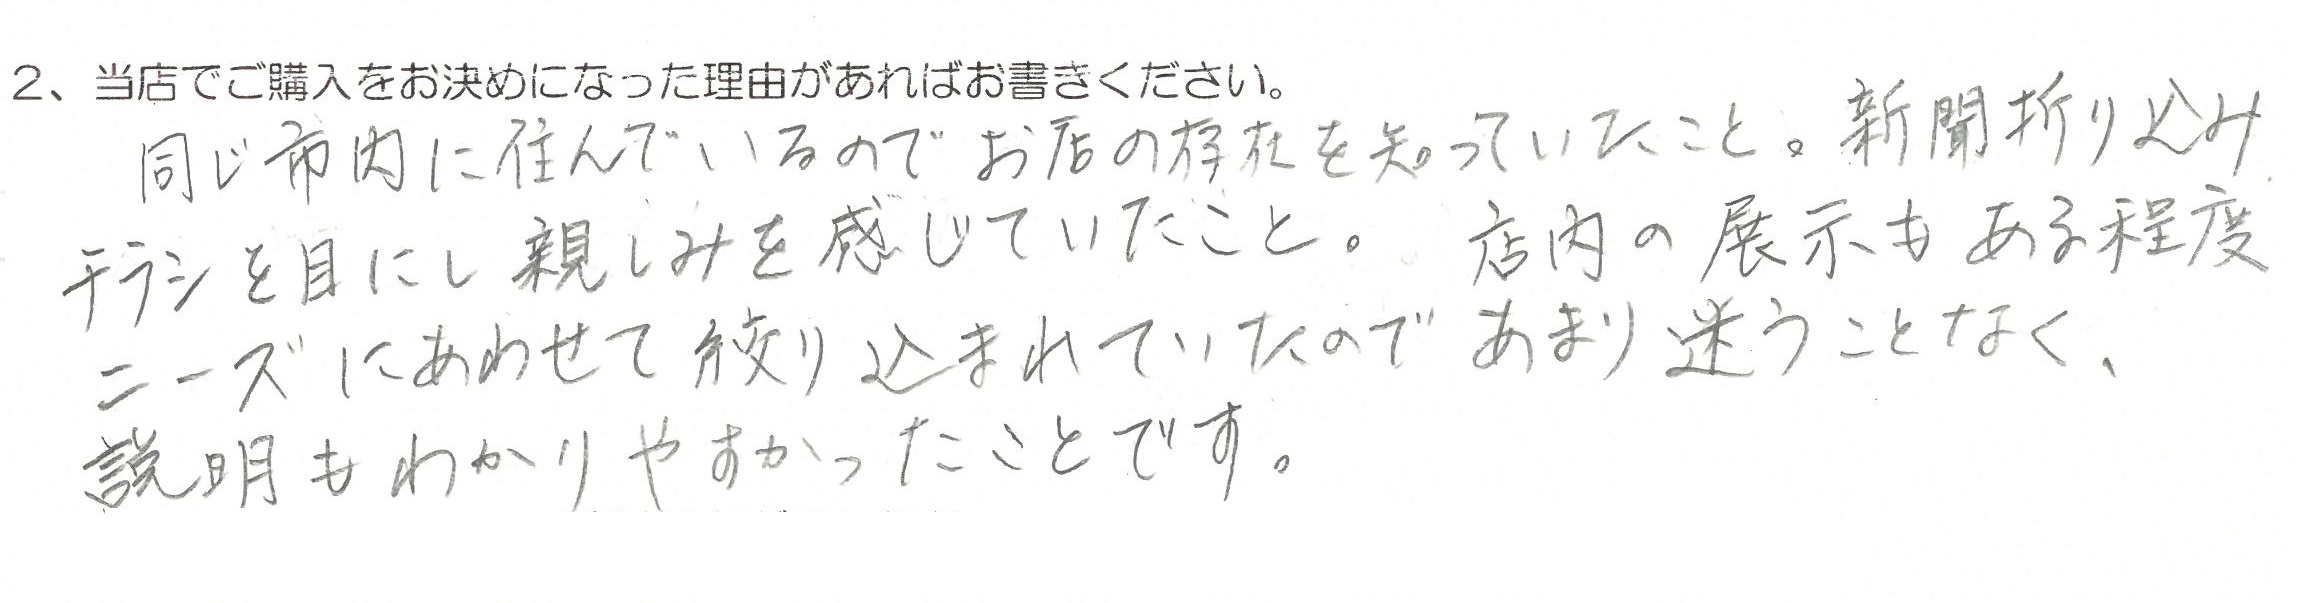 2、当店でご購入をお決めになった理由があればお書きください。
同じ市内に住んでいるのでお店の存在を知っていたこと。新聞折り込み
チラシを目にし親しみを感じていたこと。 店内の展示もある程度
ニーズにあわせて絞り込まれていたのであまり迷うことなく、
説明もわかりやすかったことです。